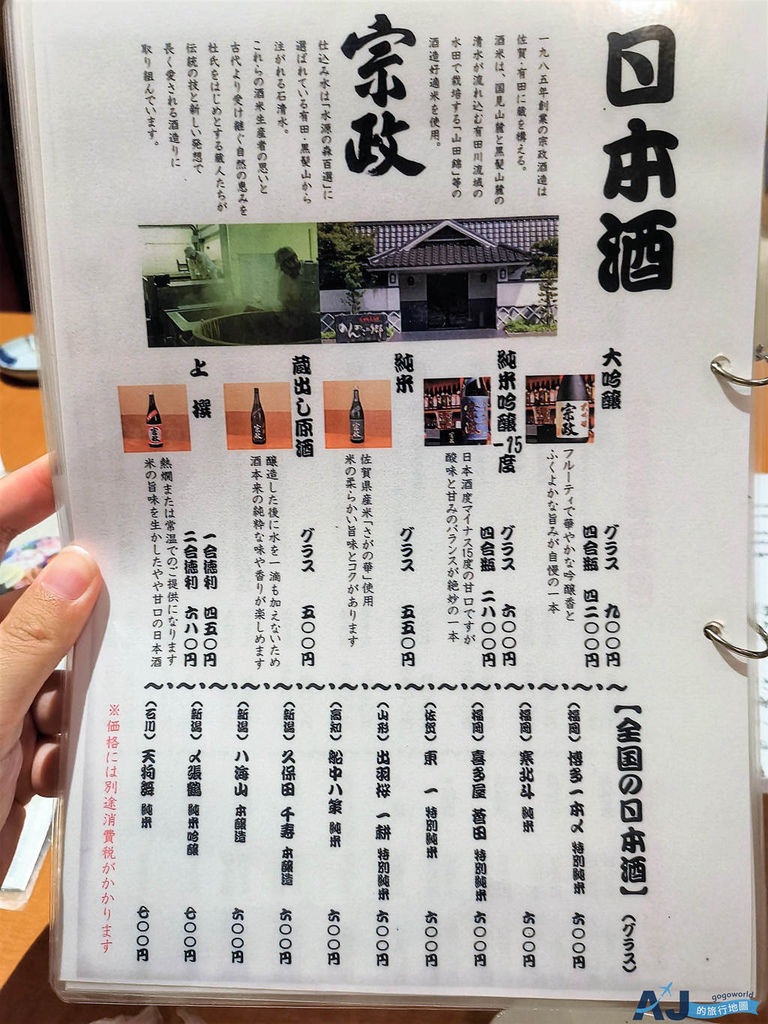 日本酒
宗政
一九八五年創業の宗政酒造は
佐賀・有田に蔵を構える。
酒米は、国見山麓と黒髪山麓の
清水が流れ込む有田川流域の
水田で栽培する「山田錦」等の
酒造好適米を使用。
仕込み水は「水源の森百選」に
選ばれている有田・黒髪山から
注がれる石清水。
これらの酒米生産者の思いと
古代より受け継ぐ自然の恵みを
杜氏をはじめとする蔵人たちが
伝統の技と新しい発想で
長く愛される酒造りに
取り組んでいます。
のんのこの郷
大吟醸
宗政
グラス 九〇〇円
四合瓶 四二〇〇円
フルーティで華やかな吟醸香と
ふくよかな旨みが自慢の一本
純米吟醸-15度
グラス 六〇〇円
四合瓶 二八〇〇円
日本酒度マイナス15度の甘口ですが
酸味と甘みのバランスが絶妙の一本
純米
グラス 五五〇円
佐賀県産米「さがの華」使用
米の柔らかい旨味とコクがあります
蔵出し原酒
グラス 五〇〇円
醸造した後に水を一滴も加えないため
酒本来の純粋な味や香りが楽しめます
上撰
一合徳利 四五〇円
二合徳利 六八〇円
熱燗または常温でのご提供になります
米の旨味を生かしたやや甘口の日本酒
【全国の日本酒】(グラス)
(福岡) 博多一本〆 特別純米 六〇〇円
(福岡) 寒北斗 純米 六〇〇円
(福岡) 喜多屋 蒼田 特別純米 六〇〇円
(佐賀) 東一 特別純米 六〇〇円
(山形) 出羽桜 一耕 特別純米 六〇〇円
(高知) 船中八策 純米 六〇〇円
(新潟) 久保田 千寿 本醸造 六〇〇円
(新潟) 八海山 本醸造 六〇〇円
(新潟) 〆張鶴 純米吟醸 七〇〇円
(石川) 天狗舞 純米 七〇〇円
※価格には別途消費税がかかります
AJ gogoworld
的旅行地圖